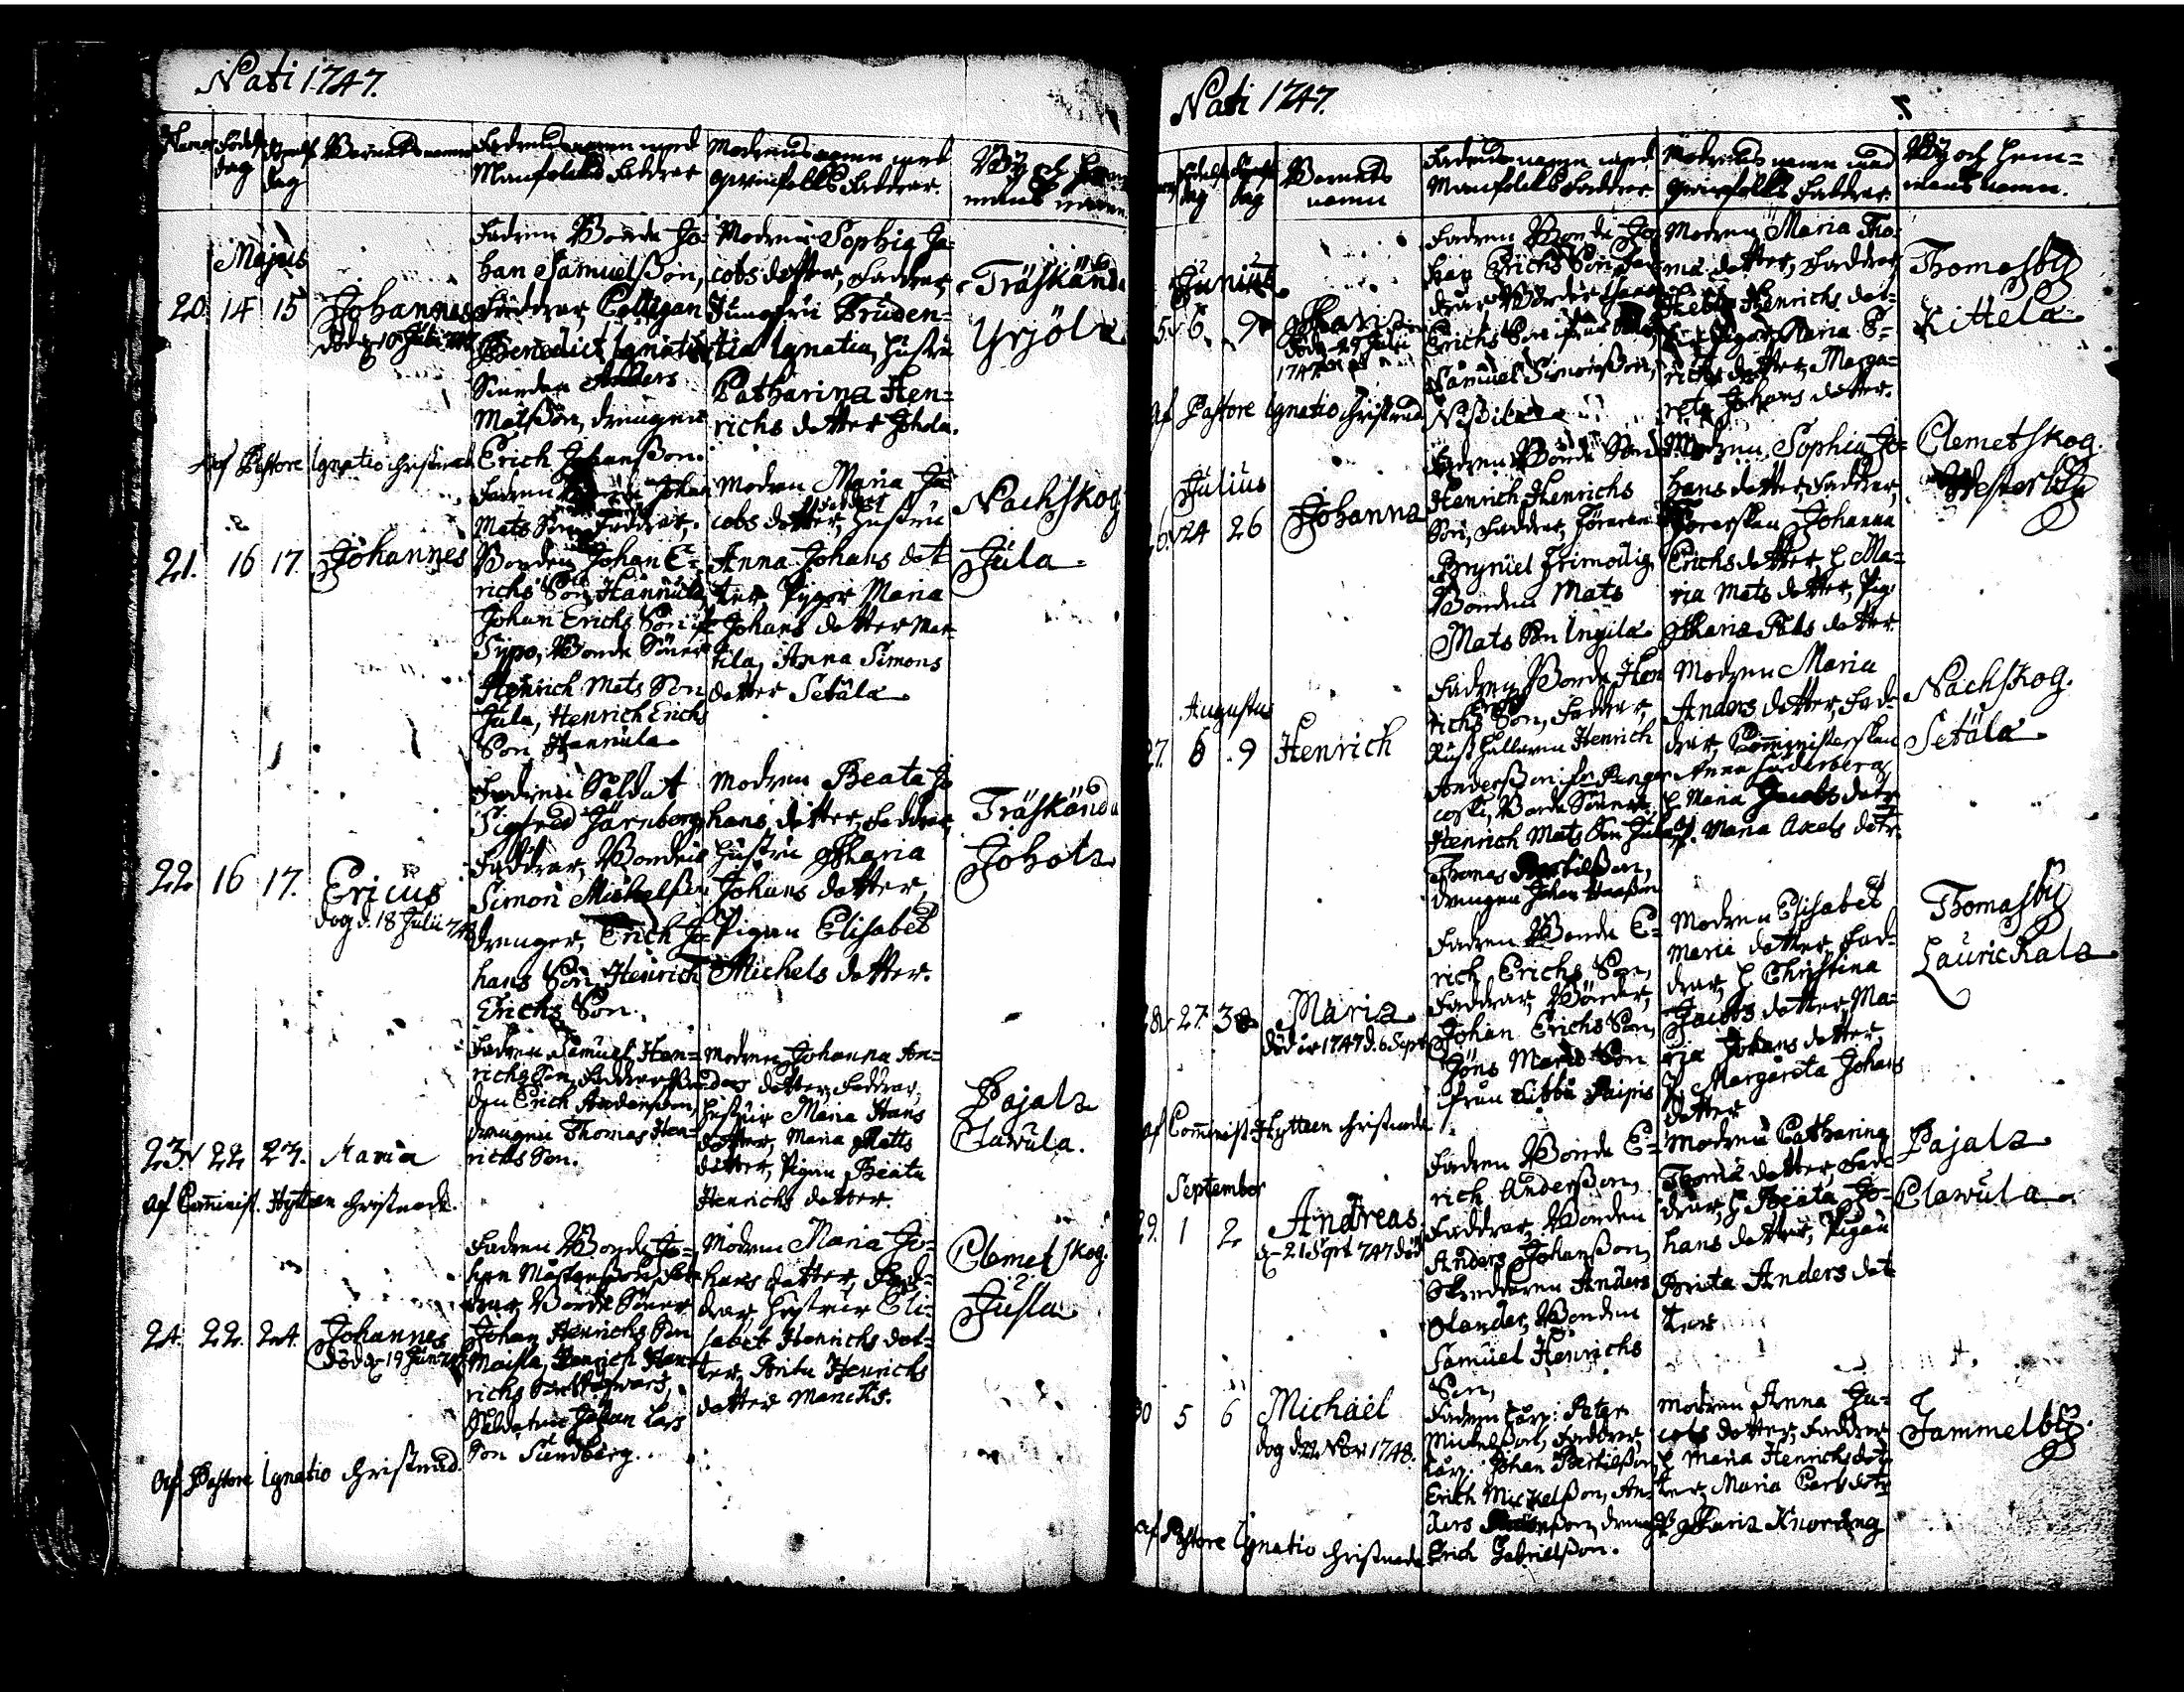 Nati 1747.
Födelse dag
Barnets namn
Fadrens namn med
Manfolcks Faddrar
Modrens namn med
qwinfolks Faddrar
By och Hem=
mans namn
Majus
20. 14 15 Johannes
död d. 10 Julii
Fadren Bonde Jo=
han Samuelsson,
Faddrar, Collegan
Benedict Ignatius
Anders
Matsson, drengen
Erich Johansson.
Modren Sophia Ja=
cobs dotter, Faddrar,
Jungfru Pruden=
tia Ignatia, hustru
Catharina Hen=
richs dotter Johola.
Träskända
Yrjölä
Af Pastore Ignatio christnad
21. 16 17. Johannes
Fadren Bonde Johan
Mats Son, Faddrar,
Bonden Johan E=
richs Son Hannula,
Johan Erichs Son
Sypo, Bonde Söner
Henrich Mats Son
Jula, Henrich Erichs
Son Hannula.
Modren Maria Ja=
cobs dotter, Faddrar hustru
Anna Johans dot
ter Pigor Maria
Johans dotter Mar
tila, Anna Simons
dotter Setälä
Nackskog
Jula.
22. 16 17. Ericus
dog d. 18 Julii 748
Fadren Soldat
Sigfred Järnberg
Faddrar, Bonden
Simon Michelsson
drenger, Erich Jo=
hans Son, Henrich
Erichs Son.
Modren Beata Jo
hans dotter, Faddrar,
hustru Maria
Johans dotter,
Pigan Elisabet
Michels dotter.
Träskända
Johola
23. 22 23. Maria
Fadren Samuel Hen=
richs Son, Faddrar Bon
den Erich Andersson,
drengen Thomas Hen=
richs Son.
Modren Johanna An=
ders dotter, Faddrar,
hustrur Maria Hans
dotter, Maria Matts
dotter, Pigan Beata
Henrichs dotter.
Pajala
Clawula.
Af Comminist. Hyttæn christnade.
24. 22. 24. Johannes
död d. 19 Jun
Fadren Bonde Jo=
han Mårtensson, Fad
drar Bonde Söner
Johan Henrichs Son
Maisla, Henrich Hen
richs Son
Soldaten Johan Lars
Son Sundberg.
Modren Maria Jo=
hans dotter, Fad=
drar, hustrur Eli=
sabet Henrichs dot=
ter, Brita Henrichs
dotter Manckis.
Clemetskog.
Jusla
Af Pastore Ignatio christnad.
Nati 1747.
7
Födelse dag
Barnets
namn
Fadrens namn med
Manfolcks Faddrar
Modrens namn med
qwinfolks Faddrar
By och Hem=
mans namn.
Junius
5. 6. 9 Maria
död d. 29 Julii
1747
Fadren Bonde Jo
han Erichs Son, Fad
drar Bönder
Erichs Son
Samuel Simonsson,
Nissila
Modren Maria Tho
mæ dotter, Faddrar,
Henrichs dot=
Pigor Maria E=
richs dotter, Marga=
reta Johans dotter.
Thomasby
Kittela
Af Pastore Ignatio christnad
Julius
6. 24 26 Johanna
Fadren Bonde Son
Henrich Henrichs
Son, Faddrar, Föraren
Brynuel Frimodig
Bonden Mats
Mats Son Ingila
Modren Sophia Jo=
hans dotter, Faddrar,
Förerskan Johanna
Erichs dotter, h. Ma=
ria Mats dotter, Pig.
Maria Pals dotter
Clemetskog.
Westerby
Augustus
27. 8 9 Henrich
Fadren Bonde Hen
richs Son, Faddrar,
Rusthållaren Henrich
Andersson fr. Range
coski, Bonde Sönerne,
Henrich Mats Son Jula
Thomas Bertilsson,
drengen Johan
Modren Maria
Anders dotter, Fad=
drar Comministerskan
Anna Söderberg,
h. Maria Jacobs dotr
P. Maria Axels dotr.
Nackskog.
Setälä
28 27. 30 Maria
död är 1747 d. 6 Sept
Fadren Bonde E=
rich Erichs Son,
Faddrar, Bönder,
Johan Erichs Son,
Jöns Mats Son
frun Libbu Paipis
Modren Elisabet
Marci dotter Fad=
drar, h Christina
Jacobs dotter, Ma=
ria Johans dotter,
P. Margareta Johans
dotter
Thomasby
Laurickala
Af Comminist. Hyttæen christnade
September
29. 1 2 Andreas
d. 21 Sept 747 död
Fadren Bonde E=
rich Andersson,
Faddrar, Bonden
Anders Johansson,
Skreddaren Anders
Olander, Bonden
Samuel Henrichs
Son,
Modren Catharina
Thomæ dotter, Fad=
drar, h Beata Jo=
hans dotter, Pigan
Brita Anders dot
ter
Pajala
Clawula.
30 5 6 Michael
dog d. 22 Nov. 1748.
Fadren torp: Peter
Mickelsson, Faddrar,
torp. Johan Bertilsson,
Erich Mickelsson, An=
ders
Erich Gabrielsson.
Modren Anna Ja=
cobs dotter, Faddrar
h Maria Henrichs dot
ter, Maria Carls dotr
P. Maria Knorring
Tammelby.
Af Pastore Ignatio christnade